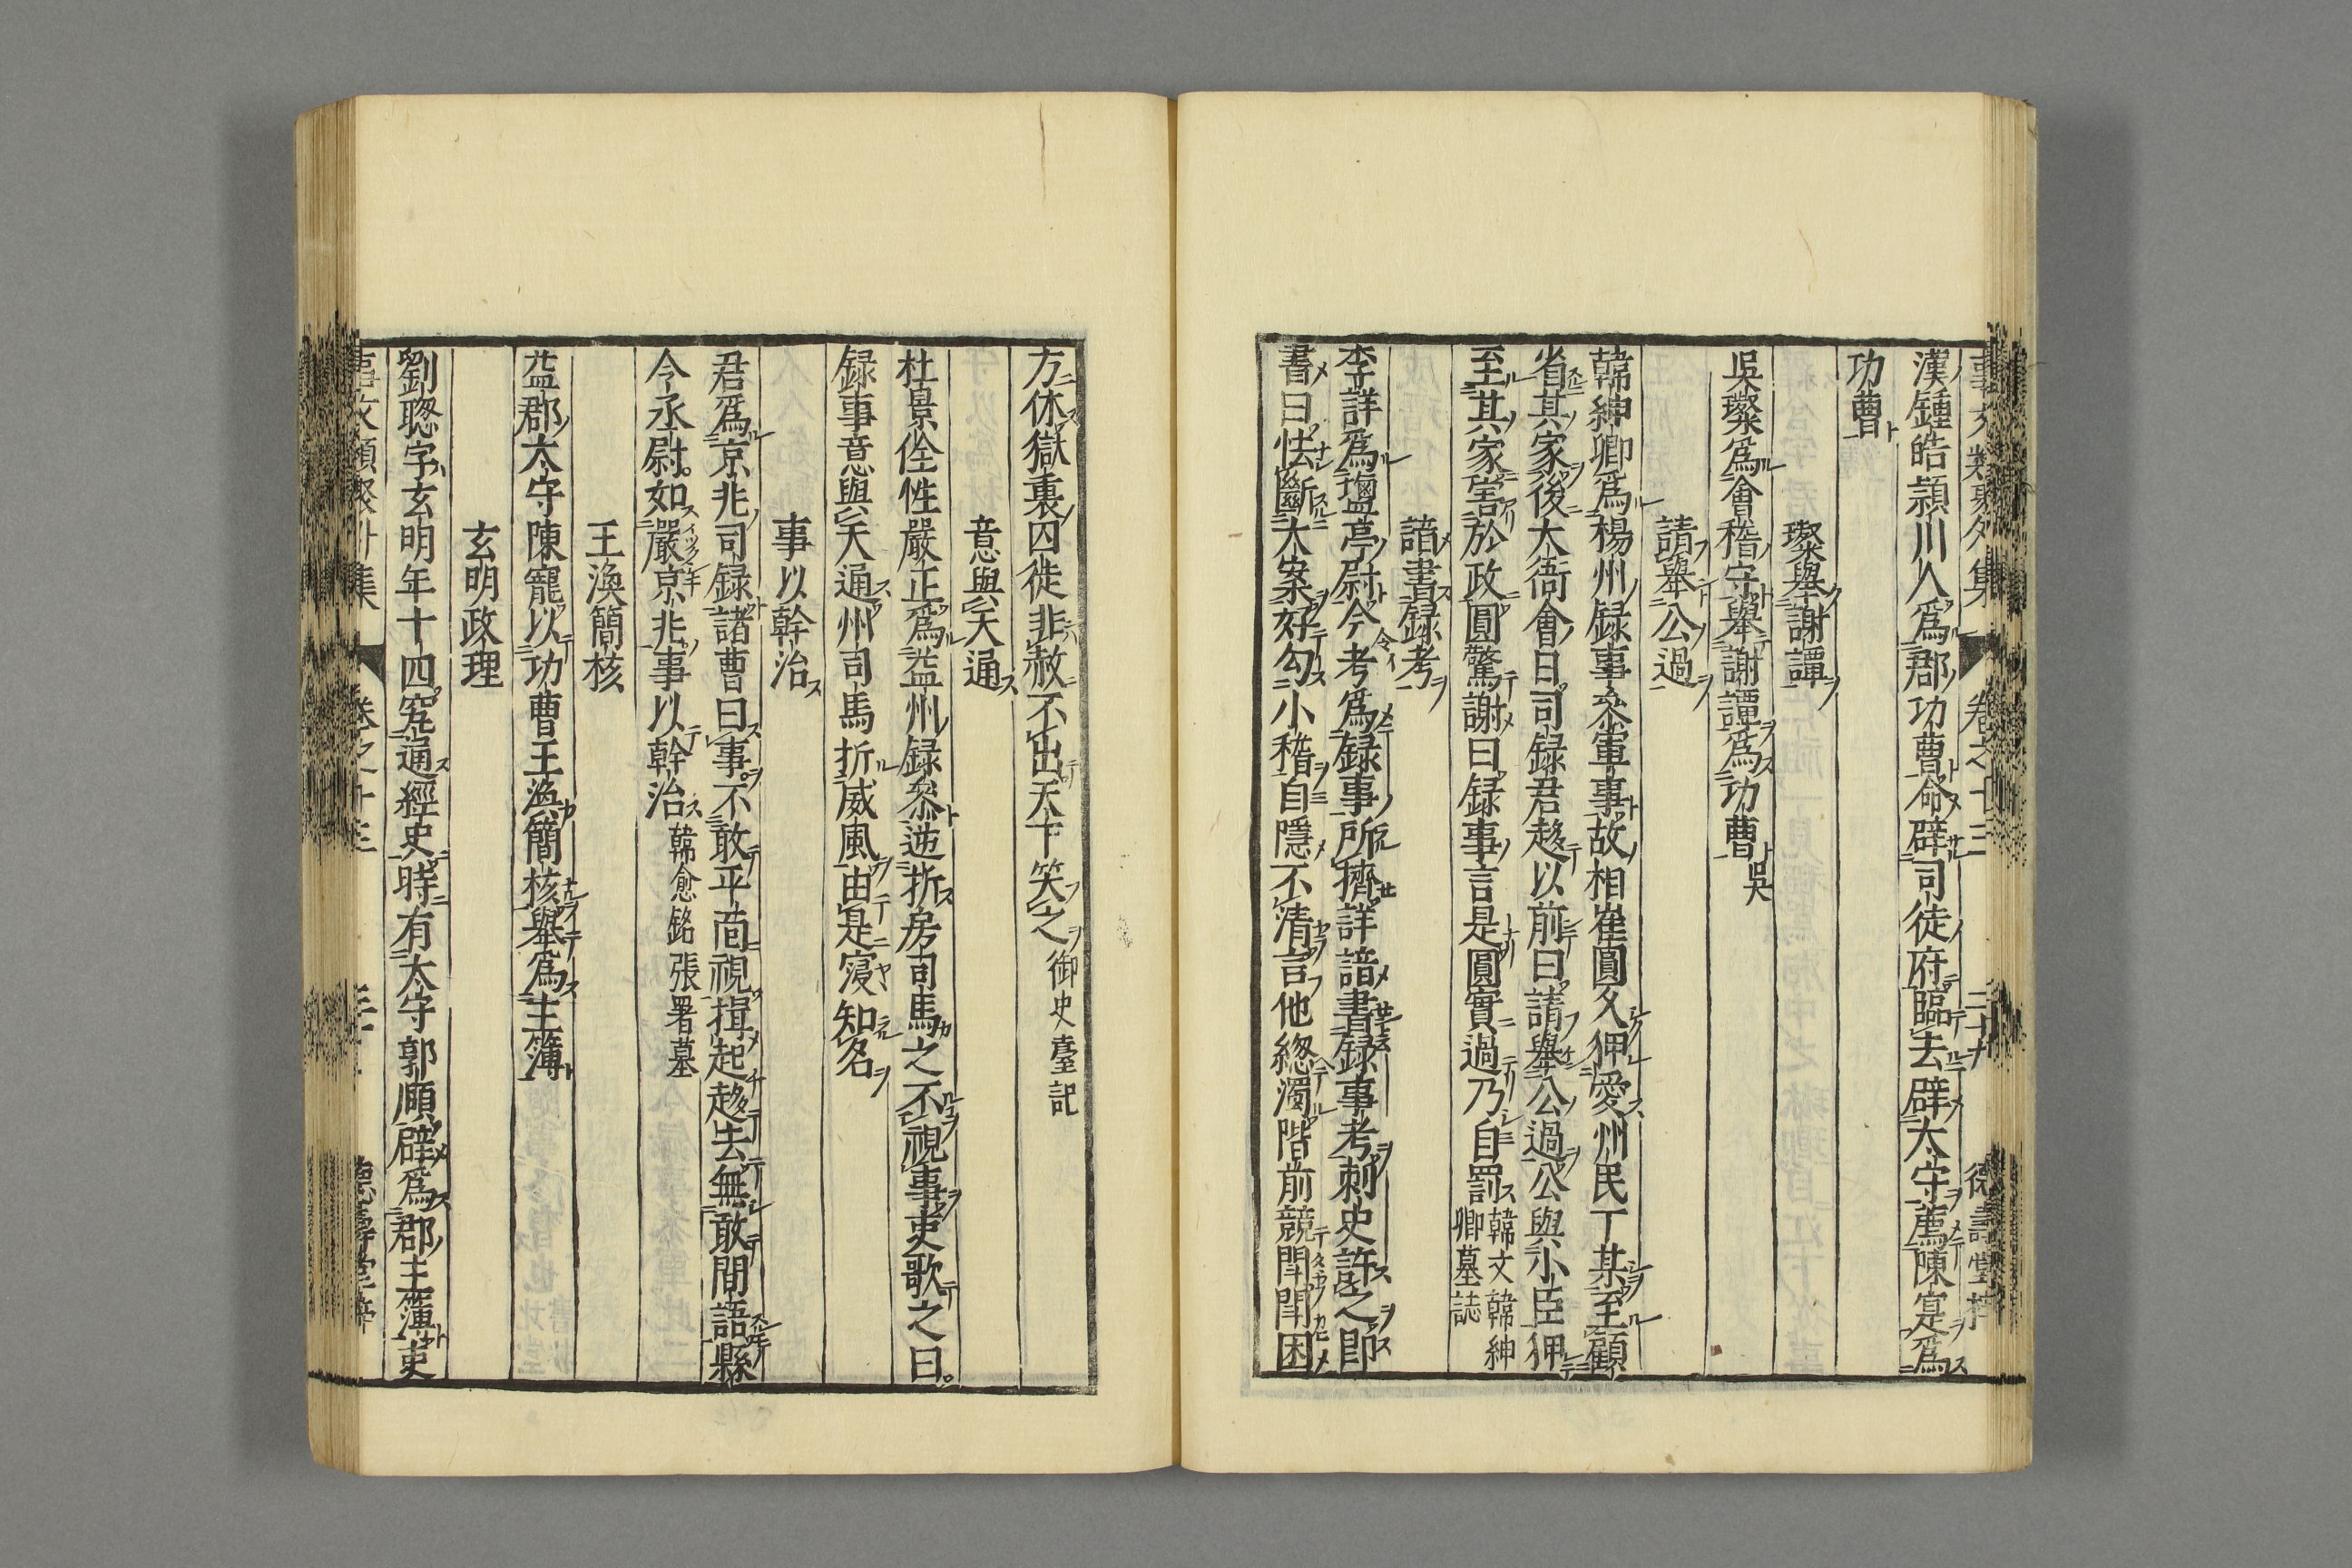 漢鍾皓潁川人爲郡功曹命辟司徒府臨去辟太守薦陳寔爲
功曹
璨舉謝譚
吳璨爲會稽守舉謝譚爲功曹吳
請舉公過
韓紳卿爲楊州録事叅軍事故相崔圓久狎愛州民丁某至顧
省其家後大衙會日司録君趍以前曰請舉公過公與小臣狎
至其家害於政圓驚謝曰録事言是圓實過乃自罰韓文韓紳卿墓誌
諳書録考
李詳爲塩亭尉令考爲録事所擠詳諳書録事考刺史許之即
書曰怯斷大案好勾小稽自隱不清言他総濁階前競閗閗困
方休獄裏囚徒非赦不出天下笑之御史臺記
意與天通
杜景佺性嚴正爲益州録叅逆折房司馬之不視事吏歌之曰
録事意與天通州司馬折威風由是寖知名
事以幹治
君爲京兆司録諸曹曰事不敢平面視揖起趍去無敢間語縣
令丞尉如嚴京兆事以幹治韓愈銘張署墓
王渙簡核
益郡太守陳寵以功曹王渙簡核舉爲主簿
玄明政理
劉聦字玄明年十四究通經史時有太守郭頤辟爲郡主簿吏